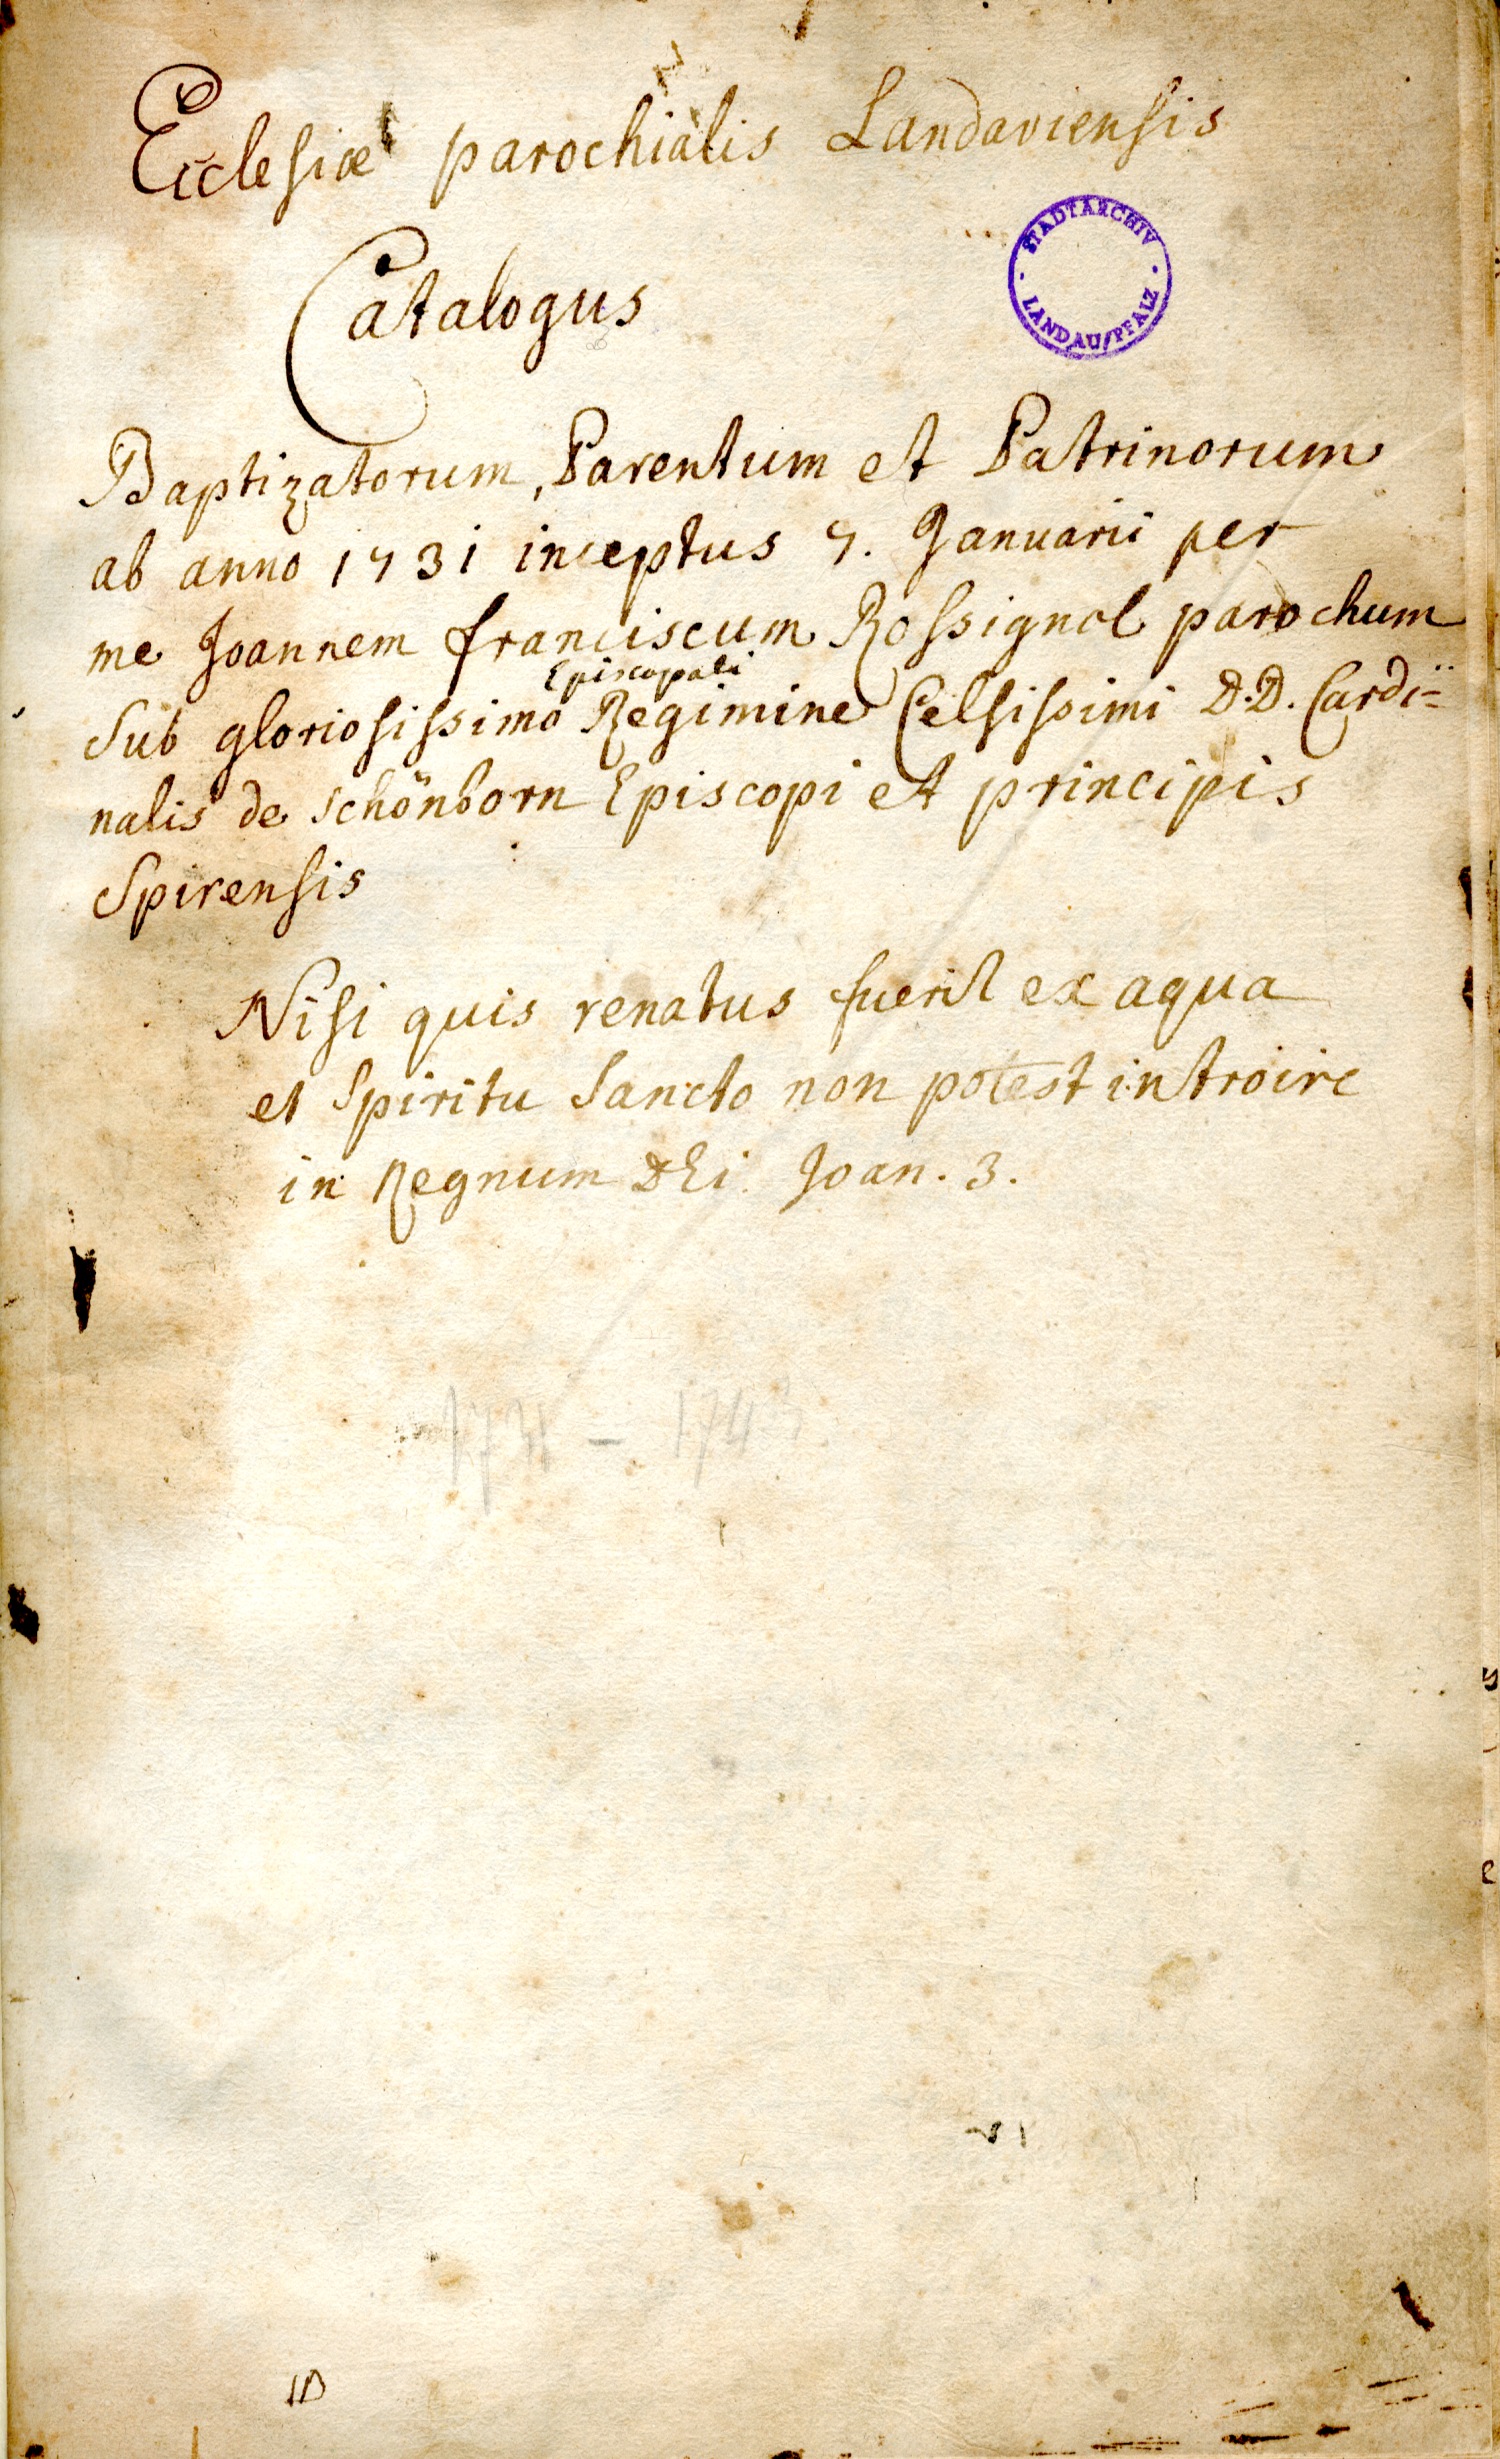 Ecclesiæ parochialis Landaviensis
STADTARCHIV
LANDAU/PFALZ
Catalogus
Baptizatorum, Parentum et Patrinorum
ab anno 1731 inceptus 7. Januarii per
me Joannem franciscum Rossignol parochum
Episcopali
Sub gloriosissimo Regimine Celsissimi D.D. Cardi=
nalis de schönborn Episcopi et principis
Spirensis
Nisi quis renatus fuerit ex aqua
et Spiritu Sancto non potest introire
in Regnum DEi Joan. 3.
1731 - 1743